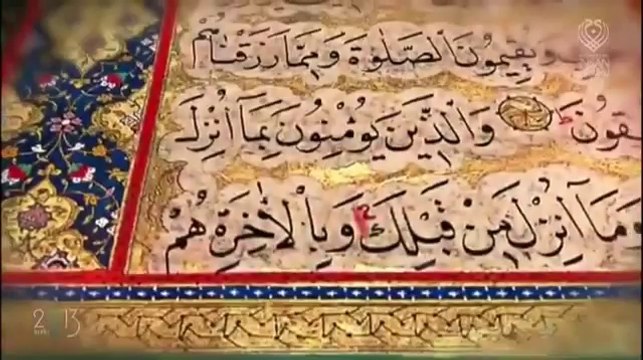 وَيُقِيمُونَ الصَّلٰوةَ وَمِمَّا رَزَقْنَاهُمْ
يُنْفِقُونَ وَالَّذِينَ يُؤْمِنُونَ بِمَا أُنْزِلَ
وَمَا أُنْزِلَ مِنْ قَبْلِكَ وَبِالْآخِرَةِ هُمْ
2 13